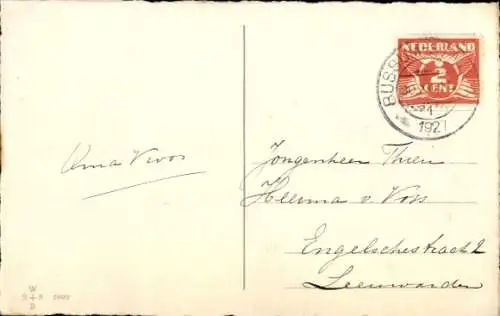 NEDERLAND
2
CENT
BUSS
1
1927
Anna Vroos
Jongenheer Thren
Heerma v. Voss
Engelschestraat 2
Leeuwarden
W
S + S
B